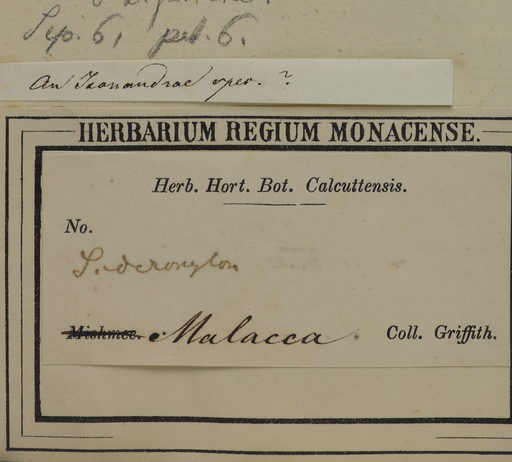 Sep. 6, pet. 6.
An Isonandrae spec. ?
HERBARIUM REGIUM MONACENSE.
Herb. Hort. Bot. Calcuttensis.
No.
Sideroxylon
Mishmee. Malacca. Coll. Griffith.